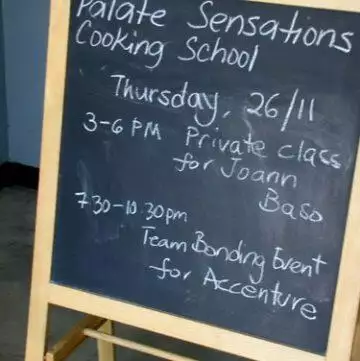 Palate Sensations
Cooking School
Thursday, 26/11
3-6 PM Private class
for Joann
Baso
7.30-10.30pm
Team Bonding Event
for Accenture